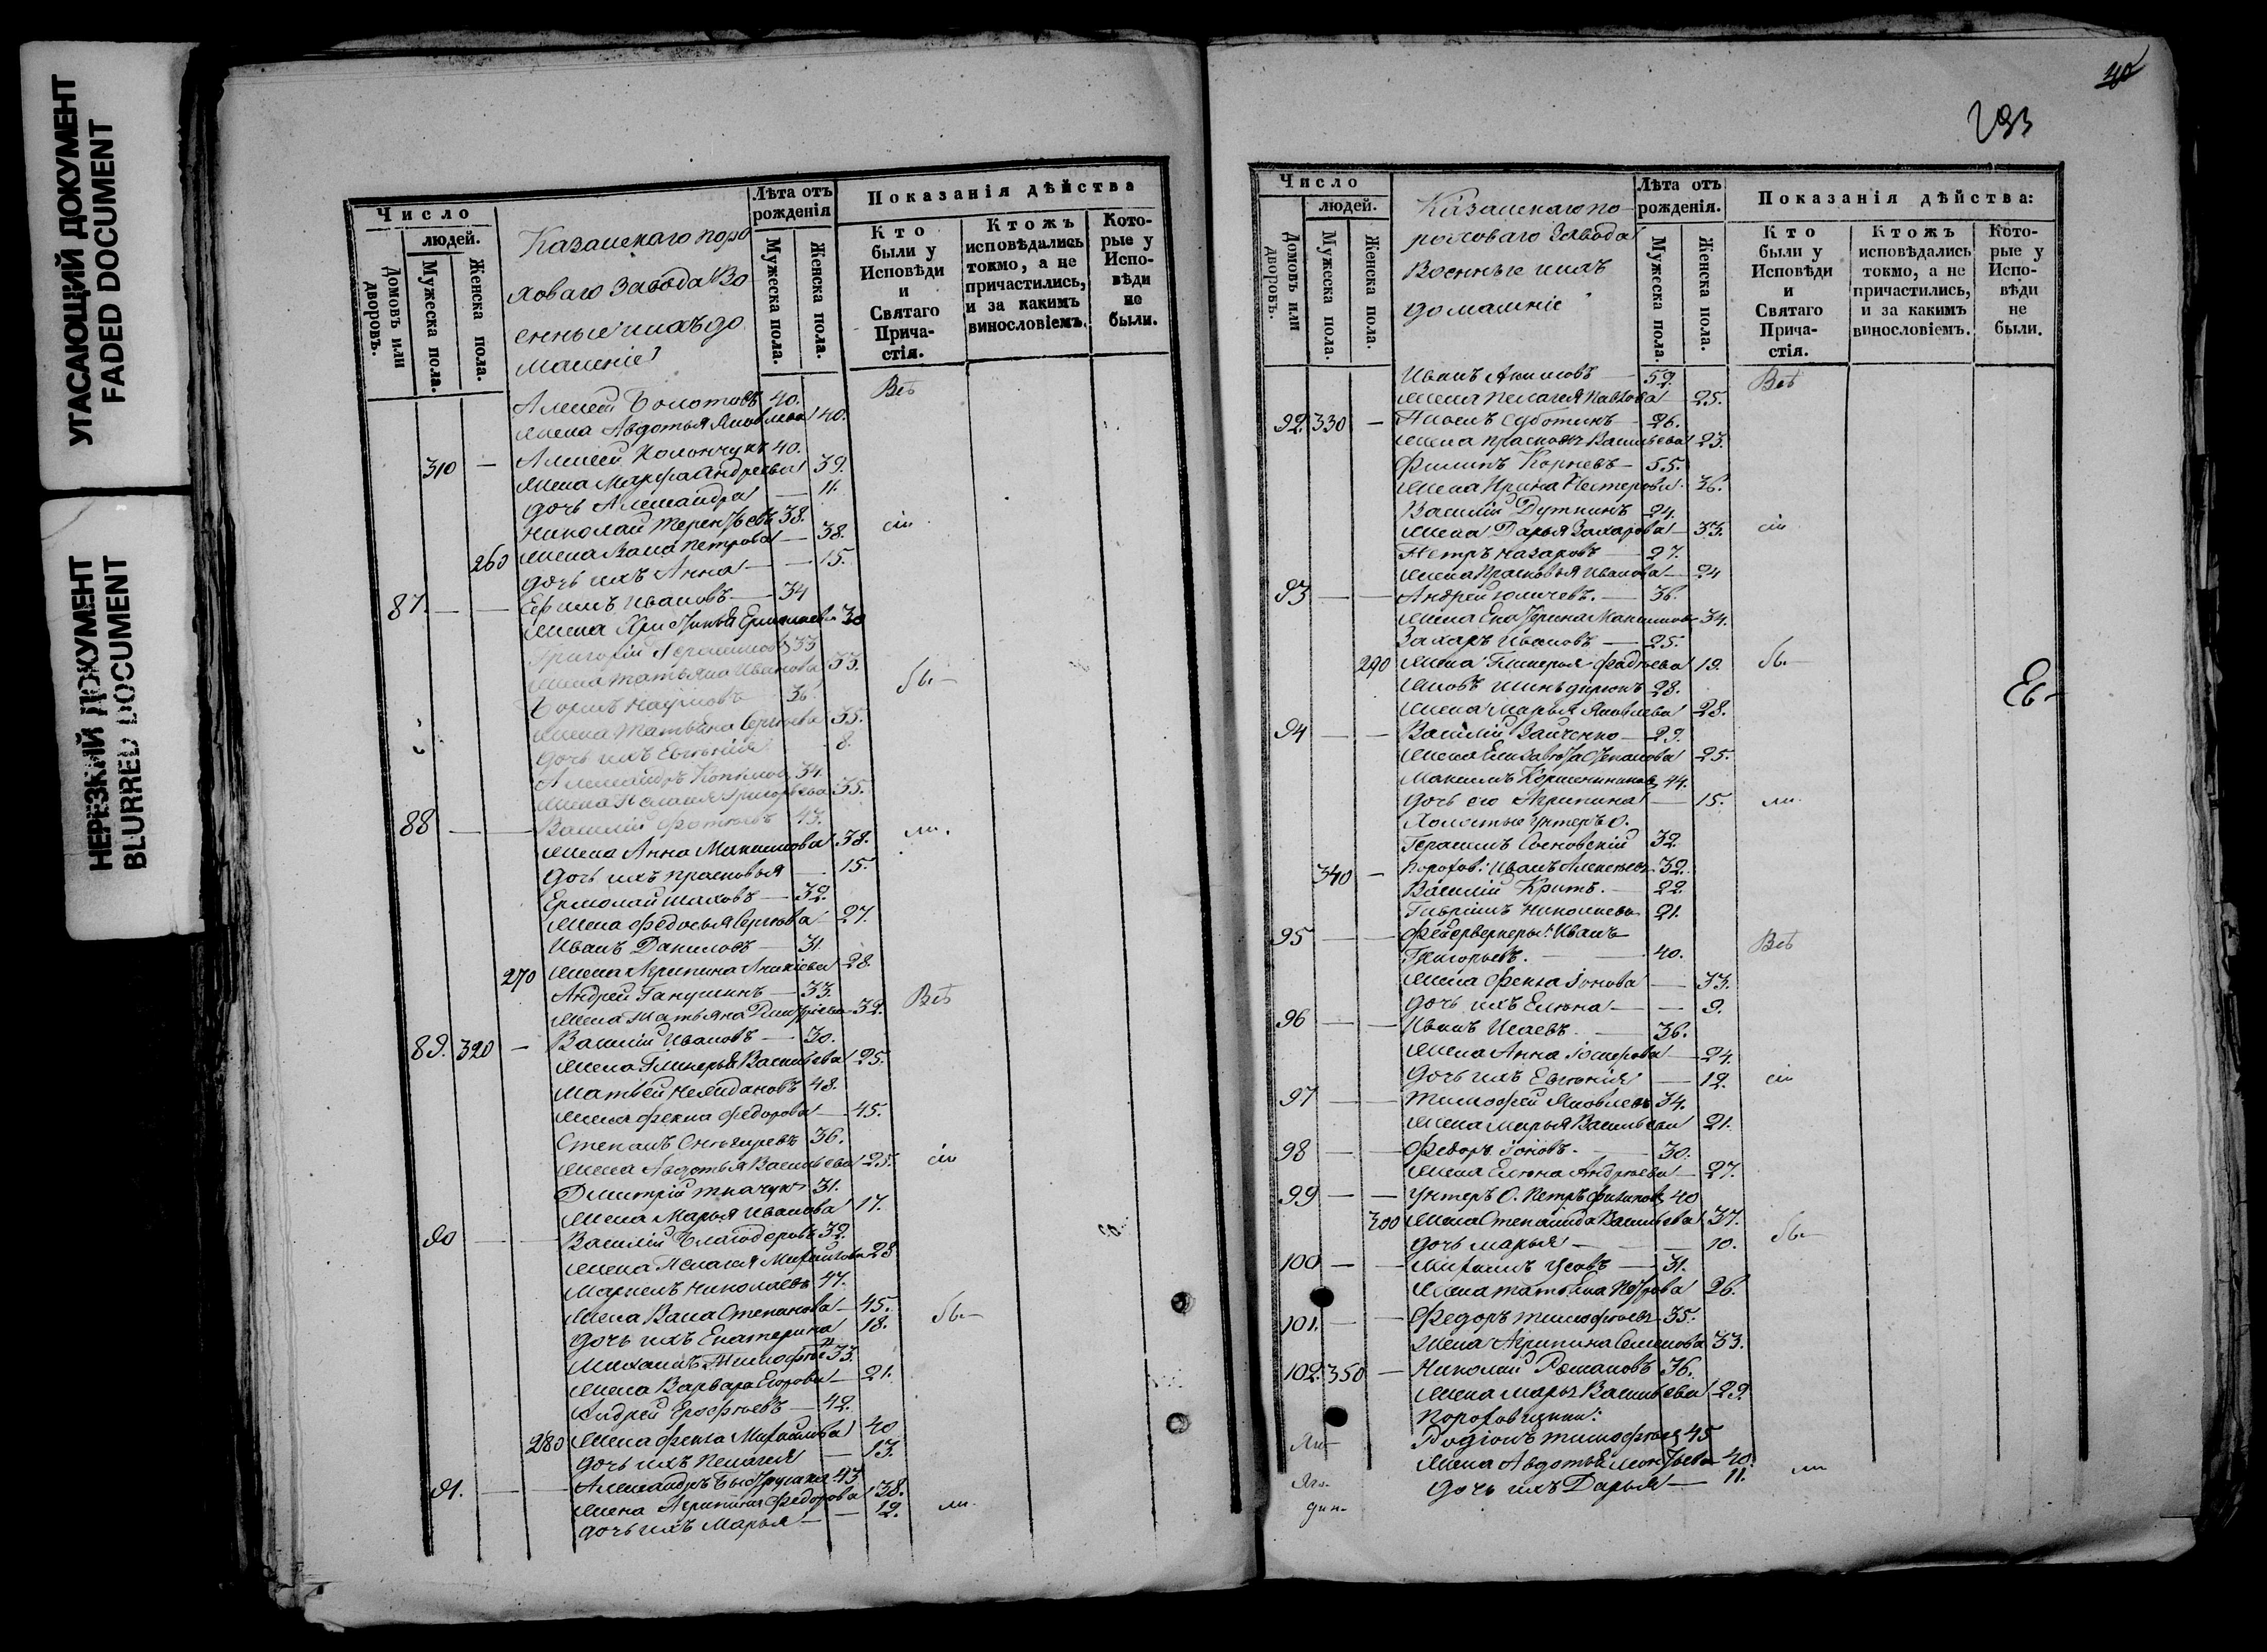 УГАСАЮЩИЙ ДОКУМЕНТ
FADED DOCUMENT
НЕРЕЗКИЙ ДОКУМЕНТ
BLURRED DOCUMENT
Число
людей.
Домовъ или дворовъ.
Мужеска пола.
Женска пола.
Казанскаго поро
ховаго завода Во
енные и ихъ до
машніе
Лѣта отъ рожденія
Мужеска пола.
Женска пола.
Показанія дѣйства
Кто были у Исповѣди и Святаго Причастія.
Ктожъ исповѣдались токмо, а не причастились, и за какимъ винословіемъ.
Которые у Исповѣди не были.
Алексей Болотовъ 40. Всѣ
жена Авдотья Яковлева 40.
310 — Алексей Колончукъ 40.
жена Марфа Андреева 39.
дочь Александра — 11.
Николай Терентьевъ 38. сіи
260 жена Васа Петрова — 38.
дочь ихъ Анна — 15.
87. — — Ефимъ Ивановъ — 34
жена Христинья 30
Григорій Герасимовъ 33
жена Татьяна Иванова 33.
Борисъ Наумовъ 36. бы—
жена Татьяна Сергѣева 35.
дочь ихъ Евгенія 8.
Александръ 34.
жена Пелагея Григорьева 35.
88 — — Василій Фотѣевъ 43.
жена Анна Максимова 38. ли.
дочь ихъ Прасковья — 15.
Ермолай Шаховъ — 32.
жена Федосья Сергѣева — 27.
Иванъ Даниловъ — 31.
270 жена Агрипина 28.
Андрей Ганушкинъ — 33.
жена Татьяна Дмитріева 32. Всѣ
89. 320 — Василій Ивановъ — 30.
жена Гликерья Васильева 25.
Матвей 48.
жена Фекла Федорова — 45.
Степанъ Снѣгиревъ 36.
жена Авдотья Васильева 25. сіи
Дмитрій Ткачукъ 31.
жена Марья Иванова 17.
90 — — Василій 32.
жена Пелагея Михайлова 28
Маркелъ Николаевъ 47.
жена Васа Степанова — 45. бы—
дочь ихъ Екатерина 18.
Михаилъ Тимофѣевъ 33.
жена Варвара Егорова — 21.
Андрей Ерофѣевъ — 42.
280 жена Фекла Михайлова 40
дочь ихъ Пелагея — 13.
91. — — Александръ 43
жена Агрипина Федорова 38.
дочь ихъ Марья — — 12. ли.
40
293
Число
людей.
Домовъ или дворовъ.
Мужеска пола.
Женска пола.
Казанскаго по-
роховаго завода
Военные и ихъ
домашніе
Лѣта отъ рожденія.
Мужеска пола.
Женска пола.
Показанія дѣйства:
Кто были у Исповѣди и Святаго Причастія.
Ктожъ исповѣдались токмо, а не причастились, и за какимъ винословіемъ.
Которые у Исповѣди не были.
Иванъ Акимовъ — 59. Всѣ
жена Пелагея Павлова — 25.
92. 330 — Суботинъ — 26.
жена Прасковья Васильева 23.
Филипъ Корневъ — 55.
жена Ирина Нестерова 36.
Василій Дуткинъ — 24.
жена Дарья Захарова — 33. сіи
Петръ Назаровъ — 27.
жена Прасковья Иванова — 24
93 — — Андрей — 36.
жена Екатерина Максимова 34.
Захаръ Ивановъ — 25.
290 жена Гликерья Фадѣева 19. бы—
28.
жена Марья Яковлева 28.
94 — — Василій Зайченко — 29.
жена Елизавета Степанова 25.
Максимъ 44.
дочь его Агрипина — 15. ли.
Холостые Унтеръ О.
Герасимъ Сосновскій 32.
340 — Порохов: Иванъ Алексѣевъ 32.
Василій Критъ. — 22.
Гаврилъ Николаевъ 21.
95 — — Фейерверкеры: Иванъ
Григорьевъ. — 40. Всѣ
жена Фекла Іонова — 33.
дочь ихъ Елена — — 9.
96 — — Иванъ Исаевъ. — 36.
жена Анна — 24.
дочь ихъ Евгенія — 12. сіи
97 — — Тимофей Яковлевъ 34.
жена Марья Васильева 21.
98 — — Федоръ Іоновъ. — 30.
жена Елена Андреева — 27.
99 — — Унтеръ О. Петръ Филиповъ 40
300 жена Степанида Васильева 37.
дочь Марья — — 10. бы—
100 — — Михаилъ Усовъ — 31.
жена Татьяна Петрова 26.
101. — — Федоръ Тимофѣевъ 35.
жена Агрипина Семенова 33.
102. 350 — Николай Романовъ 36.
жена Марья Васильева 29.
Пороховщики:
Родіонъ Тимофѣевъ 45
жена Авдотья Леонтьева 40.
дочь ихъ Дарья — 11. ли